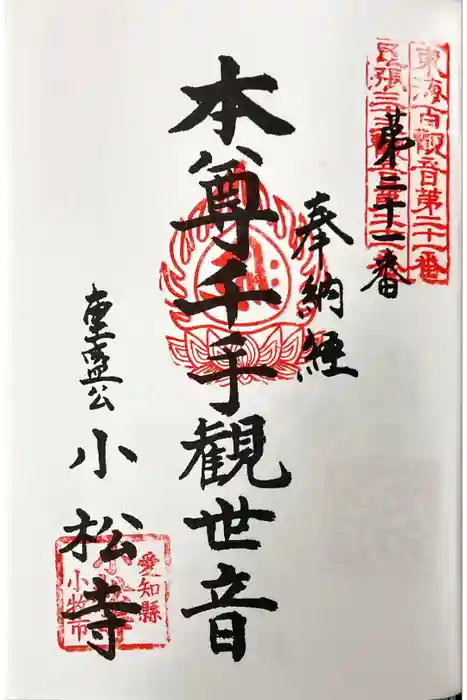 東海百觀音第二十一番
尾張三十三観音第二十一番
第二十一番
奉納経
本尊千手観世音
重盛公
小松寺
愛知縣
小牧市